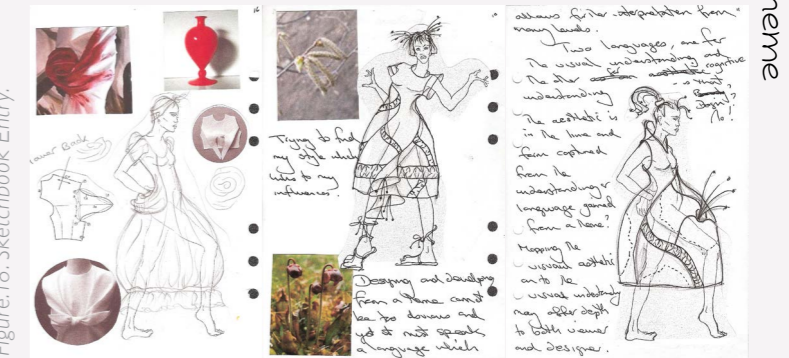 Figure.16. Sketchbook Entry.
16
Lower Back
Trying to find
my style which
links to my
influences.
Designing and developing
from a theme cannot
be too and
yet it must speak
a language which
allows further interpretation from
many levels.
Two languages, one for
the visual understanding and
the other for cognitive
understanding
is that
Down?
No!
The aesthetic is
in the line and
form captured
from the
understanding or
language gained
from a theme?
Mapping the
visual aesthetic
on to the
visual understanding
may offer depth
to both viewer
and designer.
heme